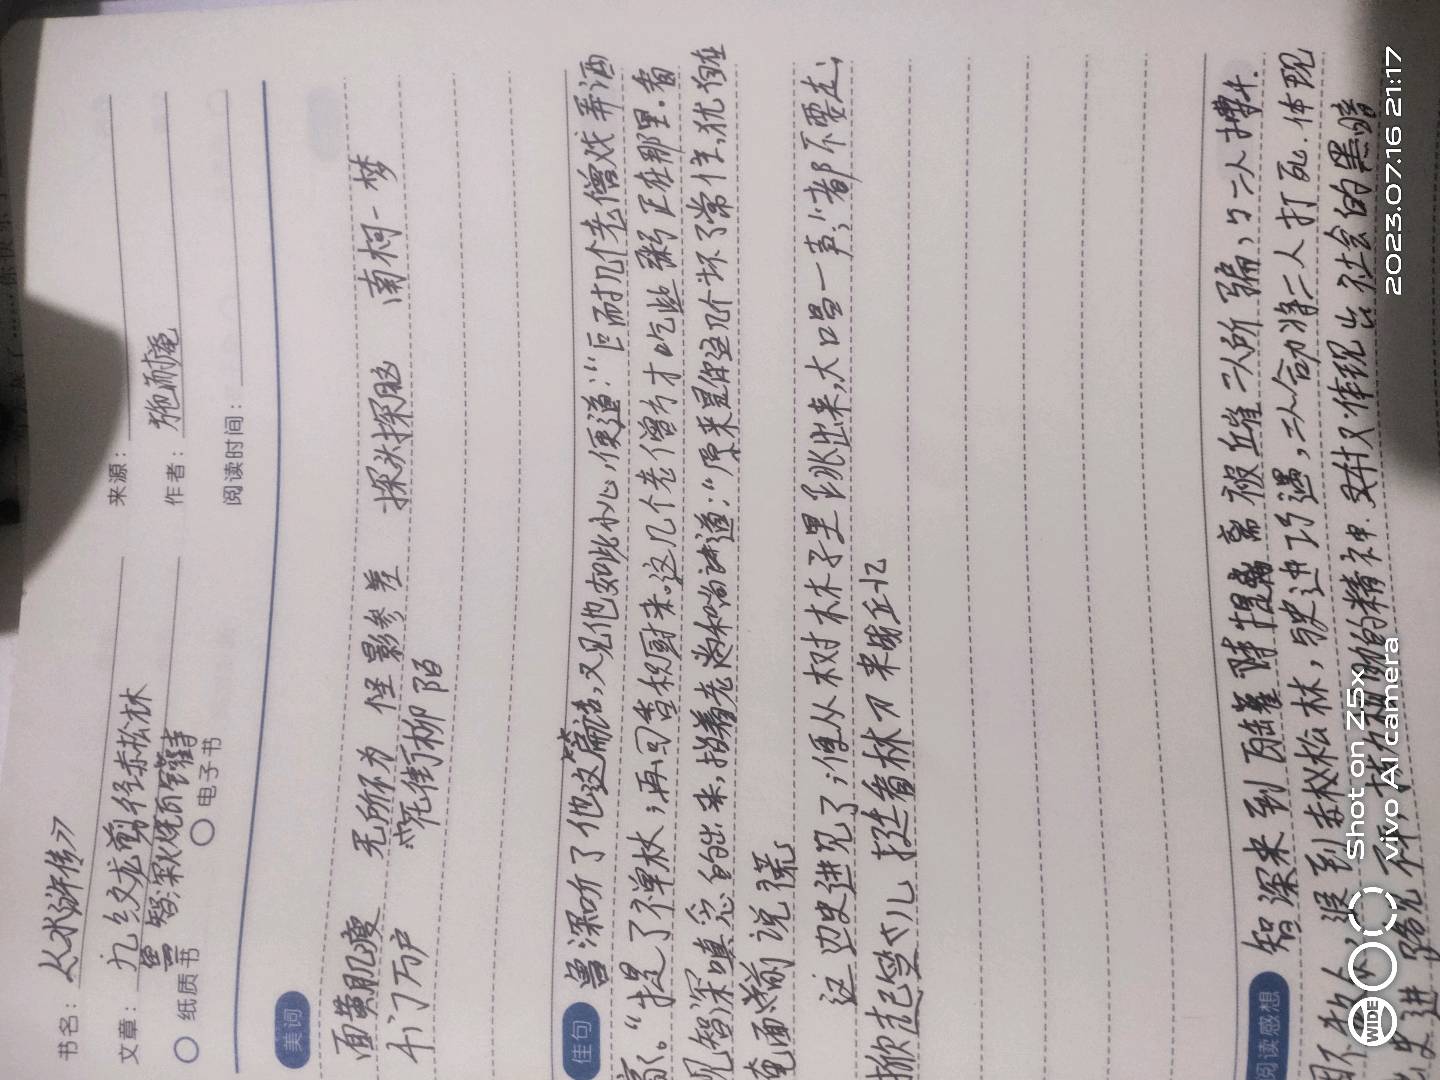 书名：《水浒传》
来源：
文章：九纹龙剪径赤松林
鲁智深火烧瓦罐寺
作者：施耐庵
纸质书
电子书
阅读时间：
美词
面黄肌瘦 无所不为 怪影参差 探头探脑 南柯一梦
千门万户 花街柳陌
佳句
鲁深听了他这篇话，又见他如此小心，便道：“叵耐几个老僧戏弄洒
家。”提了禅杖，再回香积厨来。这几个老僧方才吃些粥正在那里.看
见智深嗔忿的出来，指着老和尚道：“原来是你这几个坏了常住，犹自在
俺面前说谎
这边史进见了，便从树木子里跳出来，大喝一声，‘都不要走’，
掀起笠儿 挺着林刀来战丘
阅读感想
智深来到瓦罐寺 被丘崔二人所骗，与二人搏斗.
因不 退到赤松林，与史进巧遇，二人合力将二人打死.体现
出史进 不平， 的精神. 又体现出社会的黑暗
WIDE
Shot on Z5x
vivo AI camera
2023.07.16 21:17